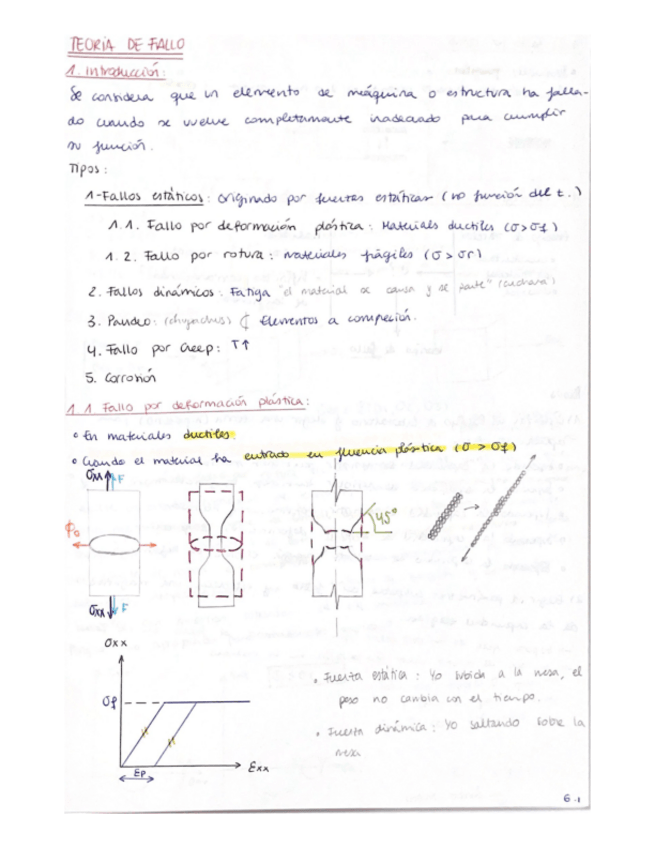 TEORIA DE FALLO
1. Introducción:
Se considera que un elemento de máquina o estructura ha falla-
do cuando se vuelve completamente inadecuado para cumplir
su función.
Tipos:
1-Fallos estáticos: originado por fuerzas estáticas (no función del t.)
1.1. Fallo por deformación plástica: Materials ductiles (σ>σf)
1.2. Fallo por rotura: materiales frágiles (σ>σr)
2. Fallos dinámicos: Fatiga "el material se cansa y se parte" (cuchara)
3. Pandeo: Elementos a compresión.
4. Fallo por creep: T↑
5. Corrosión
1.1 Fallo por deformación plástica:
• En materiales ductiles
• Cuando el material ha entrado en fluencia plástica (σ > σf)
F
ϕ0
45°
σxx F
σxx
σf
• Fuerza estática: Yo subida a la mesa, el
peso no cambia con el tiempo.
• Fuerza dinámica: Yo saltando sobre la
mesa
εp
εxx
6.1